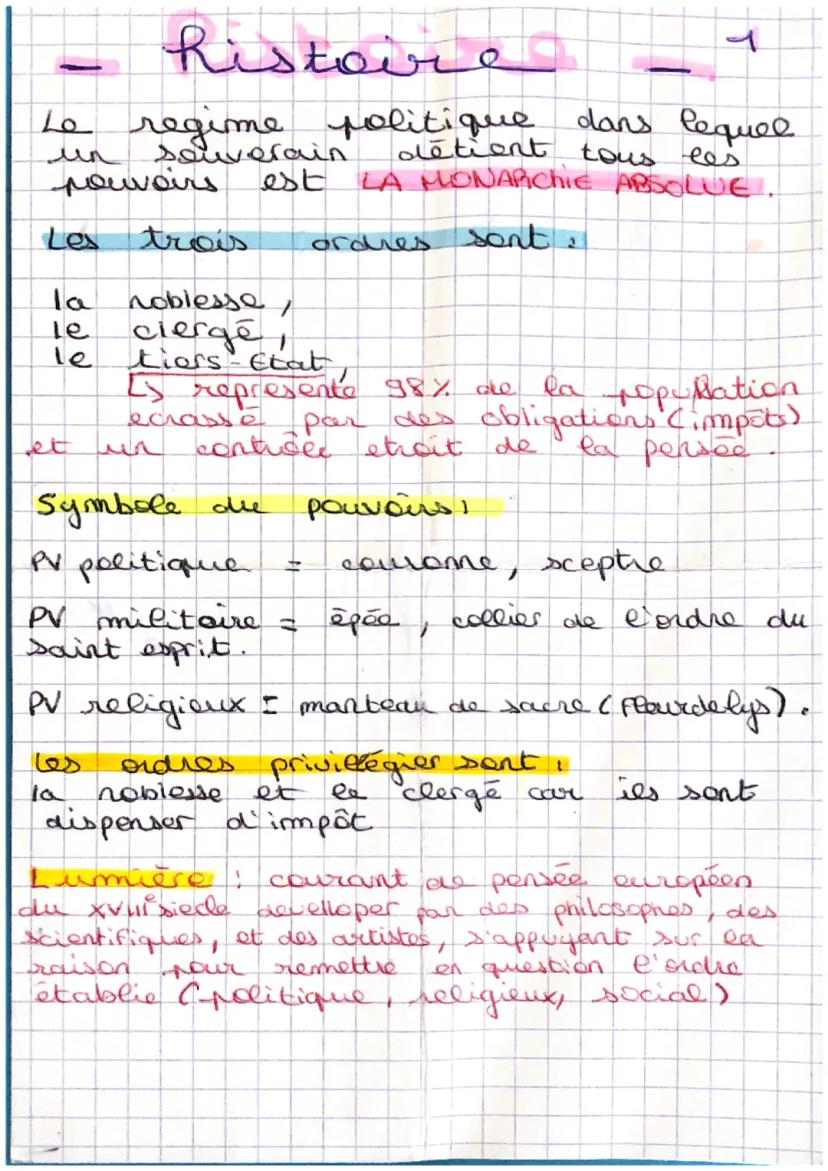 - histoire - 1
Le regime politique dans lequel
un souverain détient tous les
pouvoirs est LA MONARCHIE ABSOLUE.
Les trois ordres sont :
la noblesse,
le clergé,
le tiers-Etat,
↳ représente 98% de la population
ecrassé par des obligations (impôts)
et un contrôle etroit de la pensée.
Symbole du pouvoirs :
PV politique = couronne, sceptre
PV militaire = épée, collier de l'ordre du
saint esprit.
PV religieux = manteau de sacre (fleurdelys).
Les ordres privillégier sont :
la noblesse et le clergé car ils sont
dispenser d'impôt
Lumière : courant de pensée européen
du XVIIIe siecle develloper par des philosophes, des
scientifiques, et des artistes, s'appuyant sur la
raison pour remettre en question l'ordre
établie (politique, religieux, social)